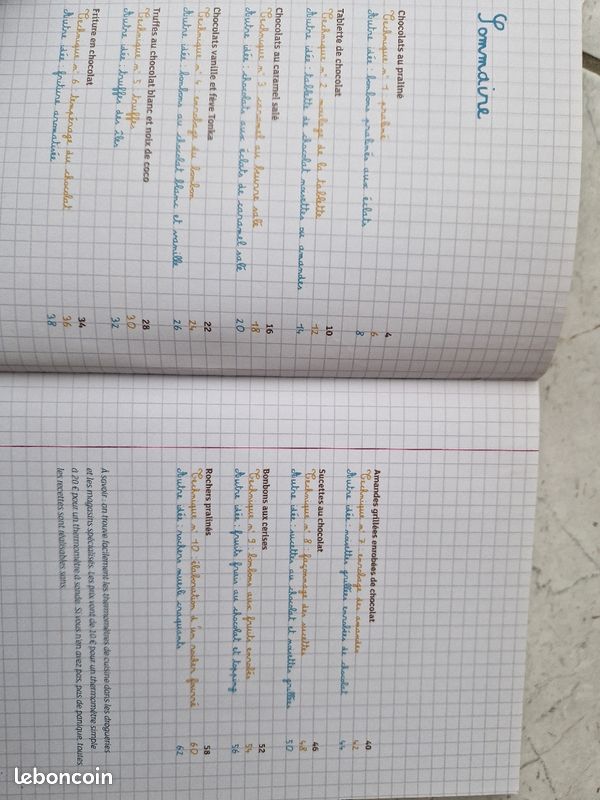 Sommaire
Chocolats au praliné 4
Technique n° 1 : praliné 6
Autre idée : bonbons pralinés aux éclats 8
Tablette de chocolat 10
Technique n° 2 : moulage de la tablette 12
Autre idée : tablette de chocolat noisettes ou amandes 14
Chocolats au caramel salé 16
Technique n° 3 : caramel au beurre salé 18
Autre idée : chocolats aux éclats de caramel salé 20
Chocolats vanille et fève Tonka 22
Technique n° 4 : enrobage du bonbon 24
Autre idée : bonbons au chocolat blanc et vanille 26
Truffes au chocolat blanc et noix de coco 28
Technique n° 5 : truffes 30
Autre idée : truffes des îles 32
Friture en chocolat 34
Technique n° 6 : tempérage du chocolat 36
Autre idée : friture aromatisée 38
Amandes grillées enrobées de chocolat 40
Technique n° 7 : enrobage des amandes 42
Autre idée : noisettes grillées enrobées de chocolat 44
Sucettes au chocolat 46
Technique n° 8 : façonnage des sucettes 48
Autre idée : sucettes au chocolat et noisettes grillées 50
Bonbons aux cerises 52
Technique n° 9 : bonbons aux fruits enrobés 54
Autre idée : fruits frais au chocolat et topping 56
Rochers pralinés 58
Technique n° 10 : élaboration d'un rocher fourré 60
Autre idée : rochers muesli craquants 62
À savoir : on trouve facilement les thermomètres de cuisine dans les drogueries
et les magasins spécialisés. Les prix vont de 10 € pour un thermomètre simple
à 20 € pour un thermomètre à sonde. Si vous n'en avez pas, pas de panique, toutes
les recettes sont réalisables sans.
leboncoin